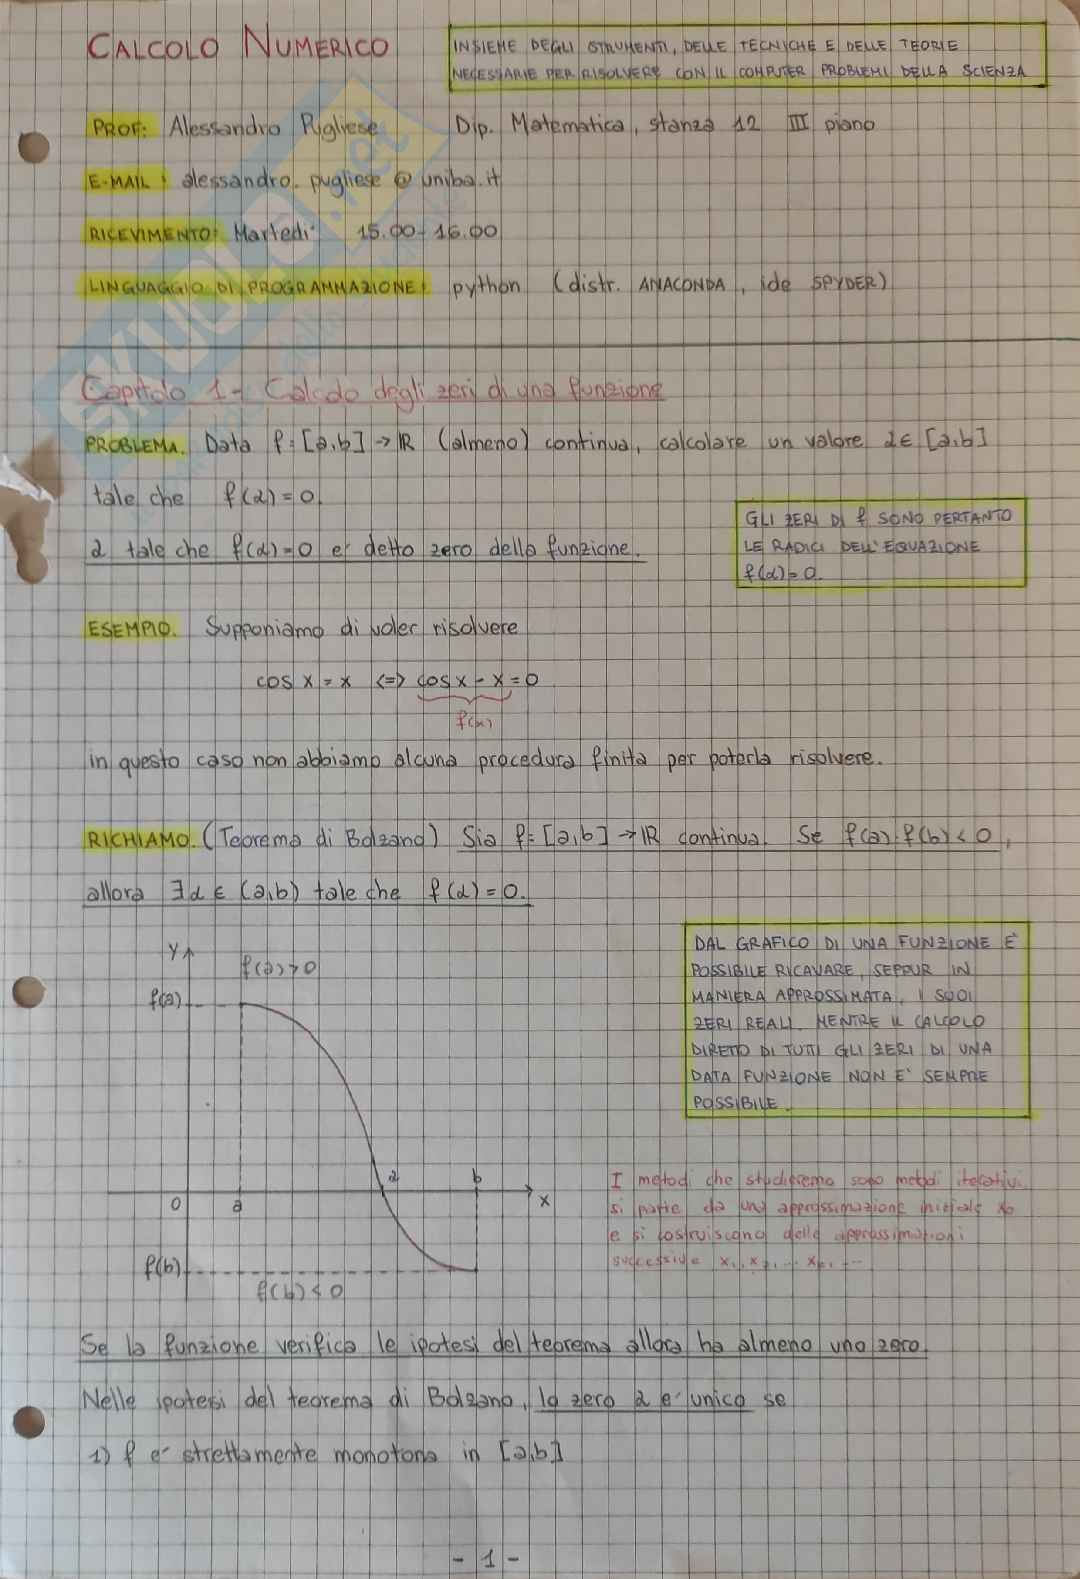 CALCOLO NUMERICO
INSIEME DEGLI STRUMENTI, DELLE TECNICHE E DELLE TEORIE
NECESSARIE PER RISOLVERE CON IL COMPUTER PROBLEMI DELLA SCIENZA
PROF: Alessandro Pugliese Dip. Matematica, stanza 12 III piano
E-MAIL: alessandro.pugliese@uniba.it
RICEVIMENTO: Martedi' 15.00-16.00
LINGUAGGIO DI PROGRAMMAZIONE: python (distr. ANACONDA, ide SPYDER)
SKUOLA.net
Capitolo 1 - Calcolo degli zeri di una funzione
PROBLEMA. Data f: [a,b] → ℝ (almeno) continua, calcolare un valore α ∈ [a,b]
tale che f(α)=0.
α tale che f(α)=0 e' detto zero della funzione.
GLI ZERI DI f SONO PERTANTO
LE RADICI DELL'EQUAZIONE
f(α)=0.
ESEMPIO. Supponiamo di voler risolvere
cos x = x <=> cos x - x = 0
f(x)
in questo caso non abbiamo alcuna procedura finita per poterla risolvere.
RICHIAMO. (Teorema di Bolzano) Sia f: [a,b] → ℝ continua. Se f(a)·f(b)<0,
allora ∃α ∈ (a,b) tale che f(α)=0.
DAL GRAFICO DI UNA FUNZIONE E'
POSSIBILE RICAVARE, SEPPUR IN
MANIERA APPROSSIMATA, I SUOI
ZERI REALI. MENTRE IL CALCOLO
DIRETTO DI TUTTI GLI ZERI DI UNA
DATA FUNZIONE NON E' SEMPRE
POSSIBILE.
y
f(a)>0
f(a)
α b
0 a x
f(b)
f(b)<0
I metodi che studieremo sono metodi iterativi
si parte da una approssimazione iniziale x₀
e si costruiscono delle approssimazioni
successive x₁, x₂, ... xₖ, ...
Se la funzione verifica le ipotesi del teorema allora ha almeno uno zero.
Nelle ipotesi del teorema di Bolzano, lo zero α e' unico se
1) f e' strettamente monotona in [a,b]
- 1 -